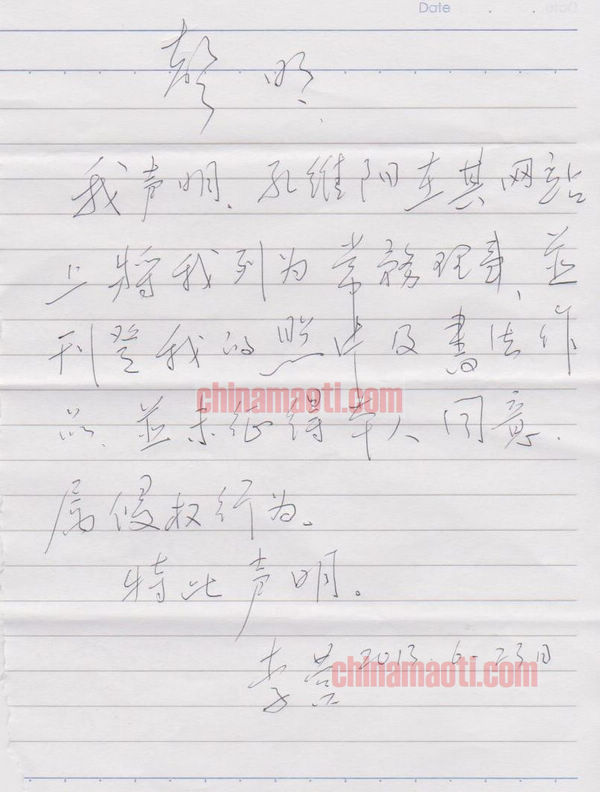 Date
Date
声明
我声明，孔维阳在其网站
上将我列为常務理事，並
刊登我的照片及書法作
chinamaoti.com
品，並未征得本人同意，
属侵权行为。
特此声明。
李
2013.6-23日
chinamaoti.com